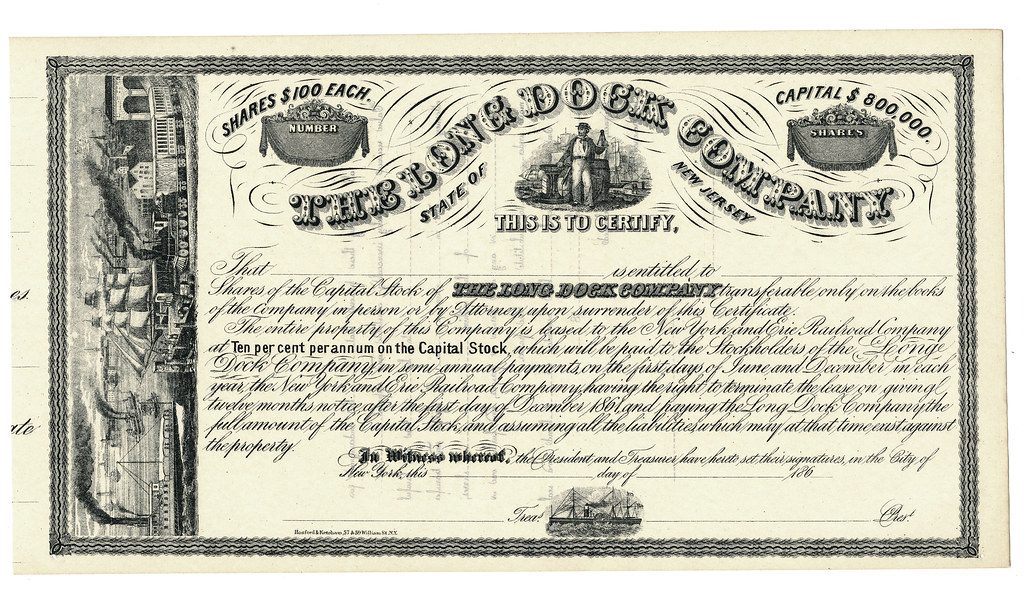 SHARES $100 EACH.
NUMBER
THE LONG DOCK COMPANY
CAPITAL $800,000.
SHARES
STATE OF NEW JERSEY
THIS IS TO CERTIFY,
That is entitled to
Shares of the Capital Stock of THE LONG DOCK COMPANY transferable only on the books
of the Company in person, or by Attorney, upon surrender of this Certificate.
The entire property of this Company is leased to the New York and Erie Railroad Company
at Ten per cent per annum on the Capital Stock, which will be paid to the Stockholders of the Long
Dock Company, in semi-annual payments, on the first days of June and December, in each
year, the New York and Erie Railroad Company, having the right to terminate the lease on giving
twelve months notice after the first day of December 1861, and paying the Long Dock Company the
full amount of the Capital Stock, and assuming all the liabilities which may at that time exist against
the property.
In Witness whereof, the President, and Treasurer, have hereto set their signatures, in the City of
New York, this day of 186
Treas.r Pres.t
Hosford & Ketcham, 57 & 59 William St. N.Y.
es.
ate